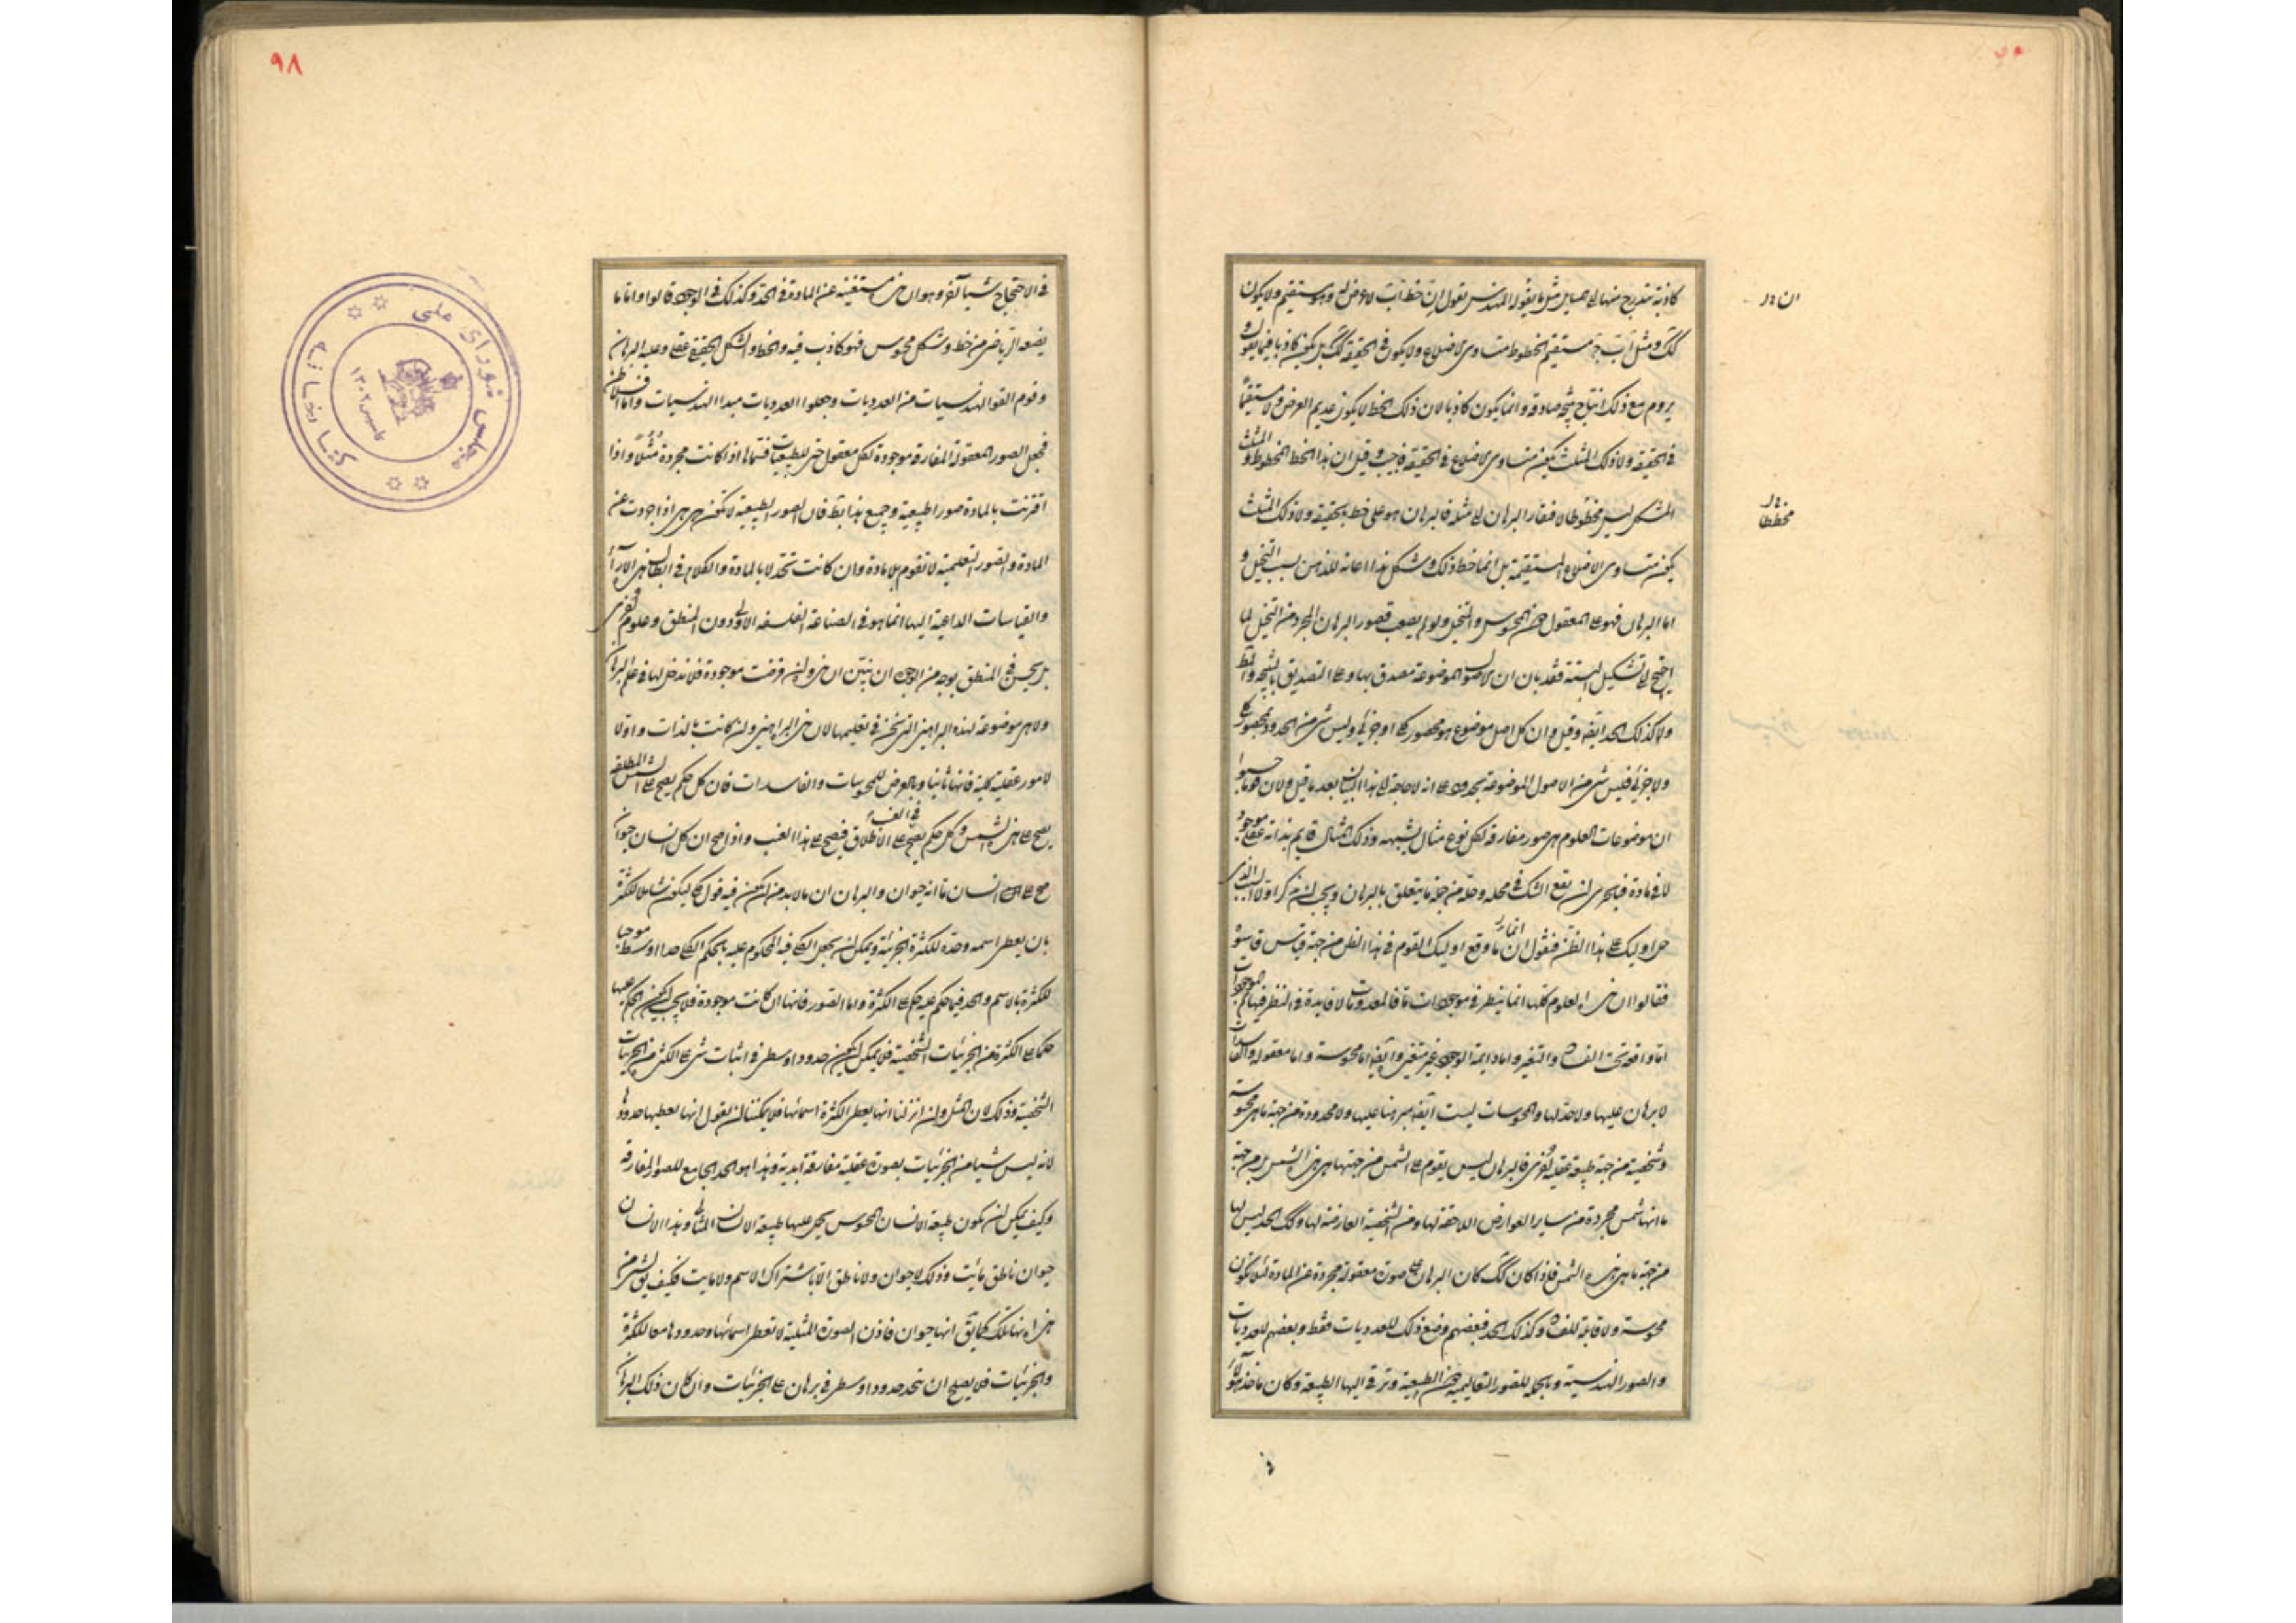 كاذبة متدرج منها الى مسايل مثل ما يقوله المهندس بقول ان خط اب لا عرض له وهو مستقيم ولا يكون
كك ومثل اب ج مستقيم الخطوط متساوى الاضلاع ولا يكون فى الحقيقة كك بل يكون كاذبا فيما يقول و
يروم مع ذلك انتاج نتيجة صادقة وانما يكون كاذبا لان ذلك الخط لا يكون عديم العرض ولا مستقيما
فى الحقيقة ولا ذلك المثلث يكون متساوى الاضلاع فى الحقيقة فاجيب وقيل ان هذا الخط المخطوط والمثلث
المشكل ليس مخطوطا لافتقار البرهان الى مثله فالبرهان هو على خط بالحقيقة ولا ذلك المثلث
يكون متساوى الاضلاع المستقيمة بل انما خط ذلك وشكل هذا اعانة للذهن بسبب التخيل و
اما البرهان فهو على المعقول دون المحسوس والمتخيل ولو لم يصعب تصور البرهان المجرد من التخيل لما
احتيج الى تشكيل البتة فقد بان ان الاصول الموضوعة مصدق بها وعلى التصديق بالنتيجة
ولا كذلك الحد ايضا وقيل وان كل اصل موضوع هو محصور كلى او جزئى وليس شئ من الحدود بمحصور كلى
ولا جزئى فليس شئ من الاصول الموضوعة بحدود على انه لا حاجة الى هذا البيان بعد ما قيل ولان قوما حسبوا
ان موضوعات العلوم هى صور مفارقة لكل نوع مثال يشبهه وذلك المثال قايم بذاته عقلى موجود
لا فى مادة فبالحرى ان يقع الشك فى محله وحله من جملة ما يتعلق بالبرهان ويجب ان نذكر اولا السبب الذى
حمل اوليك على هذا الظن فنقول ان انما وقع اوليك القوم فى هذا الظن من جهة قياس قاسوه
فقالوا ان هذه العلوم كلها انما ينظر فى موجودات ما فالمعدومات لا فايدة فى النظر فيها ثم الموجودات
اما واقعة تحت الفساد والتغير واما دايمة الوجود غير متغيرة وايضا اما محسوسة واما معقولة والفاسدات
لا برهان عليها ولا حد لها والمحسوسات ليست ايضا مبرهنا عليها ولا محدودة من جهة ما هى محسوسة
وشخصية من جهة طبيعة عقلية اخرى فالبرهان ليس يقوم على الشمس من جهتها هى هذه الشمس بل من جهة
ما انها شمس مجردة من ساير العوارض اللاحقة لها ومن الشخصية العارضة لها وكك الحد ليس لها
من جهة ما هى هذه الشمس فاذا كان كك كان البرهان على صورة معقولة مجردة عن المادة لئلا تكون
محسوسة ولا قابلة للفساد وكذلك الحد فبعضهم وضع ذلك للعدديات فقط وبعضهم للعدديات
والصور الهندسية وبالجملة للصور التعاليمية دون الطبيعية وترقى اليها الطبيعة وكان ماخذ هؤلاء
ان ٥ل
ن ٥ل
مخططا
٩٨
فى الاحتجاج شيئا آخر وهو ان هذه مستغنية عن المادة فى الحد وكذلك فى الوجود قالوا واما ما
يضعه الرياضى من خط وشكل محسوس فهو كاذب فيه والخط والشكل الحقيقى عقلى وعليه البرهان
وقوم القوا الهندسيات من العدديات وجعلوا العدديات مبدا الهندسيات واما افلاطن
فجعل الصور المعقولة المفارقة موجودة لكل معقول حتى للطبيعيات فسماها اذا كانت مجردة مثلا واذا
اقترنت بالمادة صورا طبيعية وجميع هذا باطل فان الصور الطبيعية لا تكون هى هى اذا جردت عن
المادة والصور التعليمية لا تقوم بلا مادة وان كانت تحد لا بالمادة والكلام فى ابطال هذه الآراء
والقياسات الداعية اليها انما هو فى الصناعة الفلسفة الاولى دون المنطق وعلوم اخرى
بل يحسن فى المنطق بوجه من الوجوه ان يتبين ان هذه وان فرضت موجودة فلا مدخل لها فى علم البرهان
ولا هى موضوعة لهذه البراهين التى نحن فى تعليمها لان هذه البراهين وان كانت بالذات واولا
لامور عقلية كلية فانها ثانيا وبالعرض للمحسوسات والفاسدات فان كل حكم يصح على الشمس المطلقة
يصح على هذه الشمس وكل حكم يصح على الاطلاق فى الغب فيصح على هذا الغب واذا صح ان كل انسان حيوان
صح على انسان ما انه حيوان والبرهان ان ما لا بد من ان يكون فيه قول كلى ليكون شاملا للكثرة
بان يعطى اسمه وحده للكثرة الجزئية ويمكن ان يجعل الكلى فيه المحكوم عليه بالحكم الكلى حدا اوسط موجبا
للكثرة بالاسم والحد فيما حكم عليه حكم على الكثرة واما الصور فانها ان كانت موجودة فلا يجب ان يكون الحكم عليها
حكما على الكثرة من الجزئيات الشخصية فلا يمكن ان تكون حدودا وسطى فى اثبات شئ على الكثير من الجزئيات
الشخصية وذلك لان المثل وان انزلنا انها يعطى الكثرة اسمائها فلا يمكننا ان نقول انها يعطيها حدودها
لانه ليس شيئا من الجزئيات بصورة عقلية مفارقة ابدية وهذا هو الحد الجامع للصور المفارقة
وكيف يمكن ان تكون طبيعة الانسان المحسوس يحمل عليها طبيعة الانسان المثالى وهذا الانسان
حيوان ناطق مائت وذلك لا حيوان ولا ناطق الا باشتراك الاسم ولا مايت فكيف يق لشئ من
هذه انها تلك كما يق انها حيوان فاذن الصورة المثلية لا تعطى اسمائها وحدودها معا للكثرة
والجزئيات فلا يصلح ان تتخذ حدودا وسطى فى برهان على الجزئيات وان كان ذلك البرهان
كتابخانه مجلس شوراى ملى
تاسيس ١٣٠٢